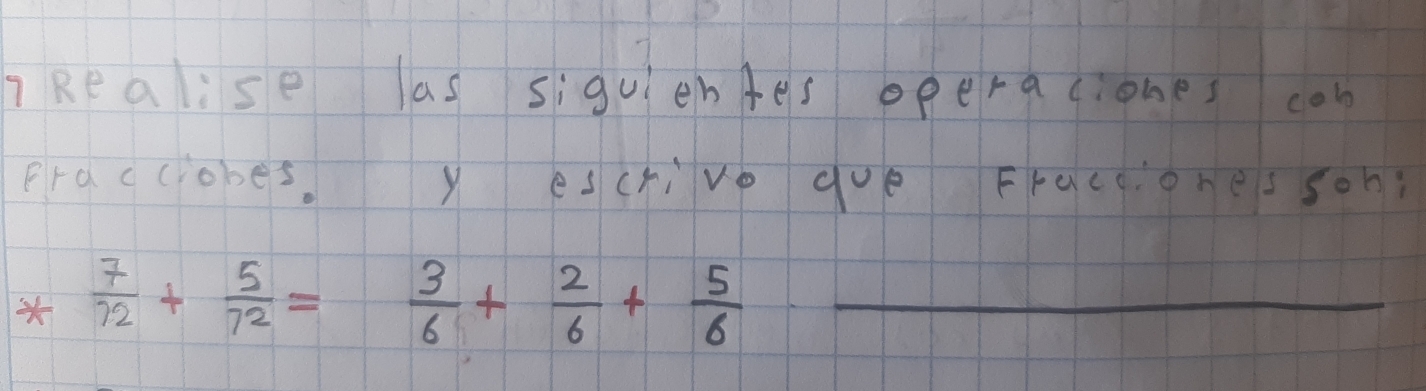 1 Realise las siguientes operaciones con
Fracciones. y escrivo que Fracciones son:
* 7/12 + 5/12 = 3/6 + 2/6 + 5/6